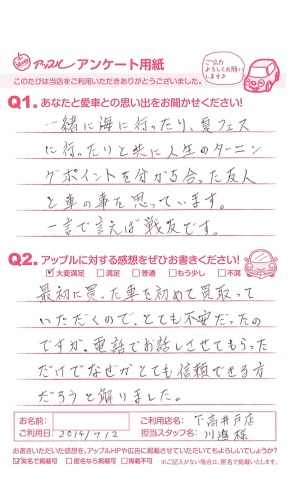 アップル アンケート用紙
ご協力
よろしくお願い
します♪
このたびは当店をご利用いただきありがとうございました。
Q1. あなたと愛車との思い出をお聞かせください!
一緒に海に行ったり、夏フェス
に行ったりと共に人生のターニン
グポイントを分かち合った友人
と車の事を思っています。
一言で言えば戦友です。
Q2. アップルに対する感想をぜひお書きください!
☑大変満足 □満足 □普通 □もう少し □不満
最初に買った車を初めて買取って
いただくので、とても不安だったの
ですが、電話でお話しさせてもらった
だけでなぜかとても信頼できる方
だろうと解りました。
お名前: ご利用店名: 下高井戸店
ご利用日: 2014/7/2 担当スタッフ名: 川邉様
お書きいただいた感想を、アップルHPや広告に掲載させていただいてもよろしいでしょうか?
☑実名で掲載可 □匿名なら掲載可 □掲載不可 ※ご記入がない場合は、匿名で掲載いたします。